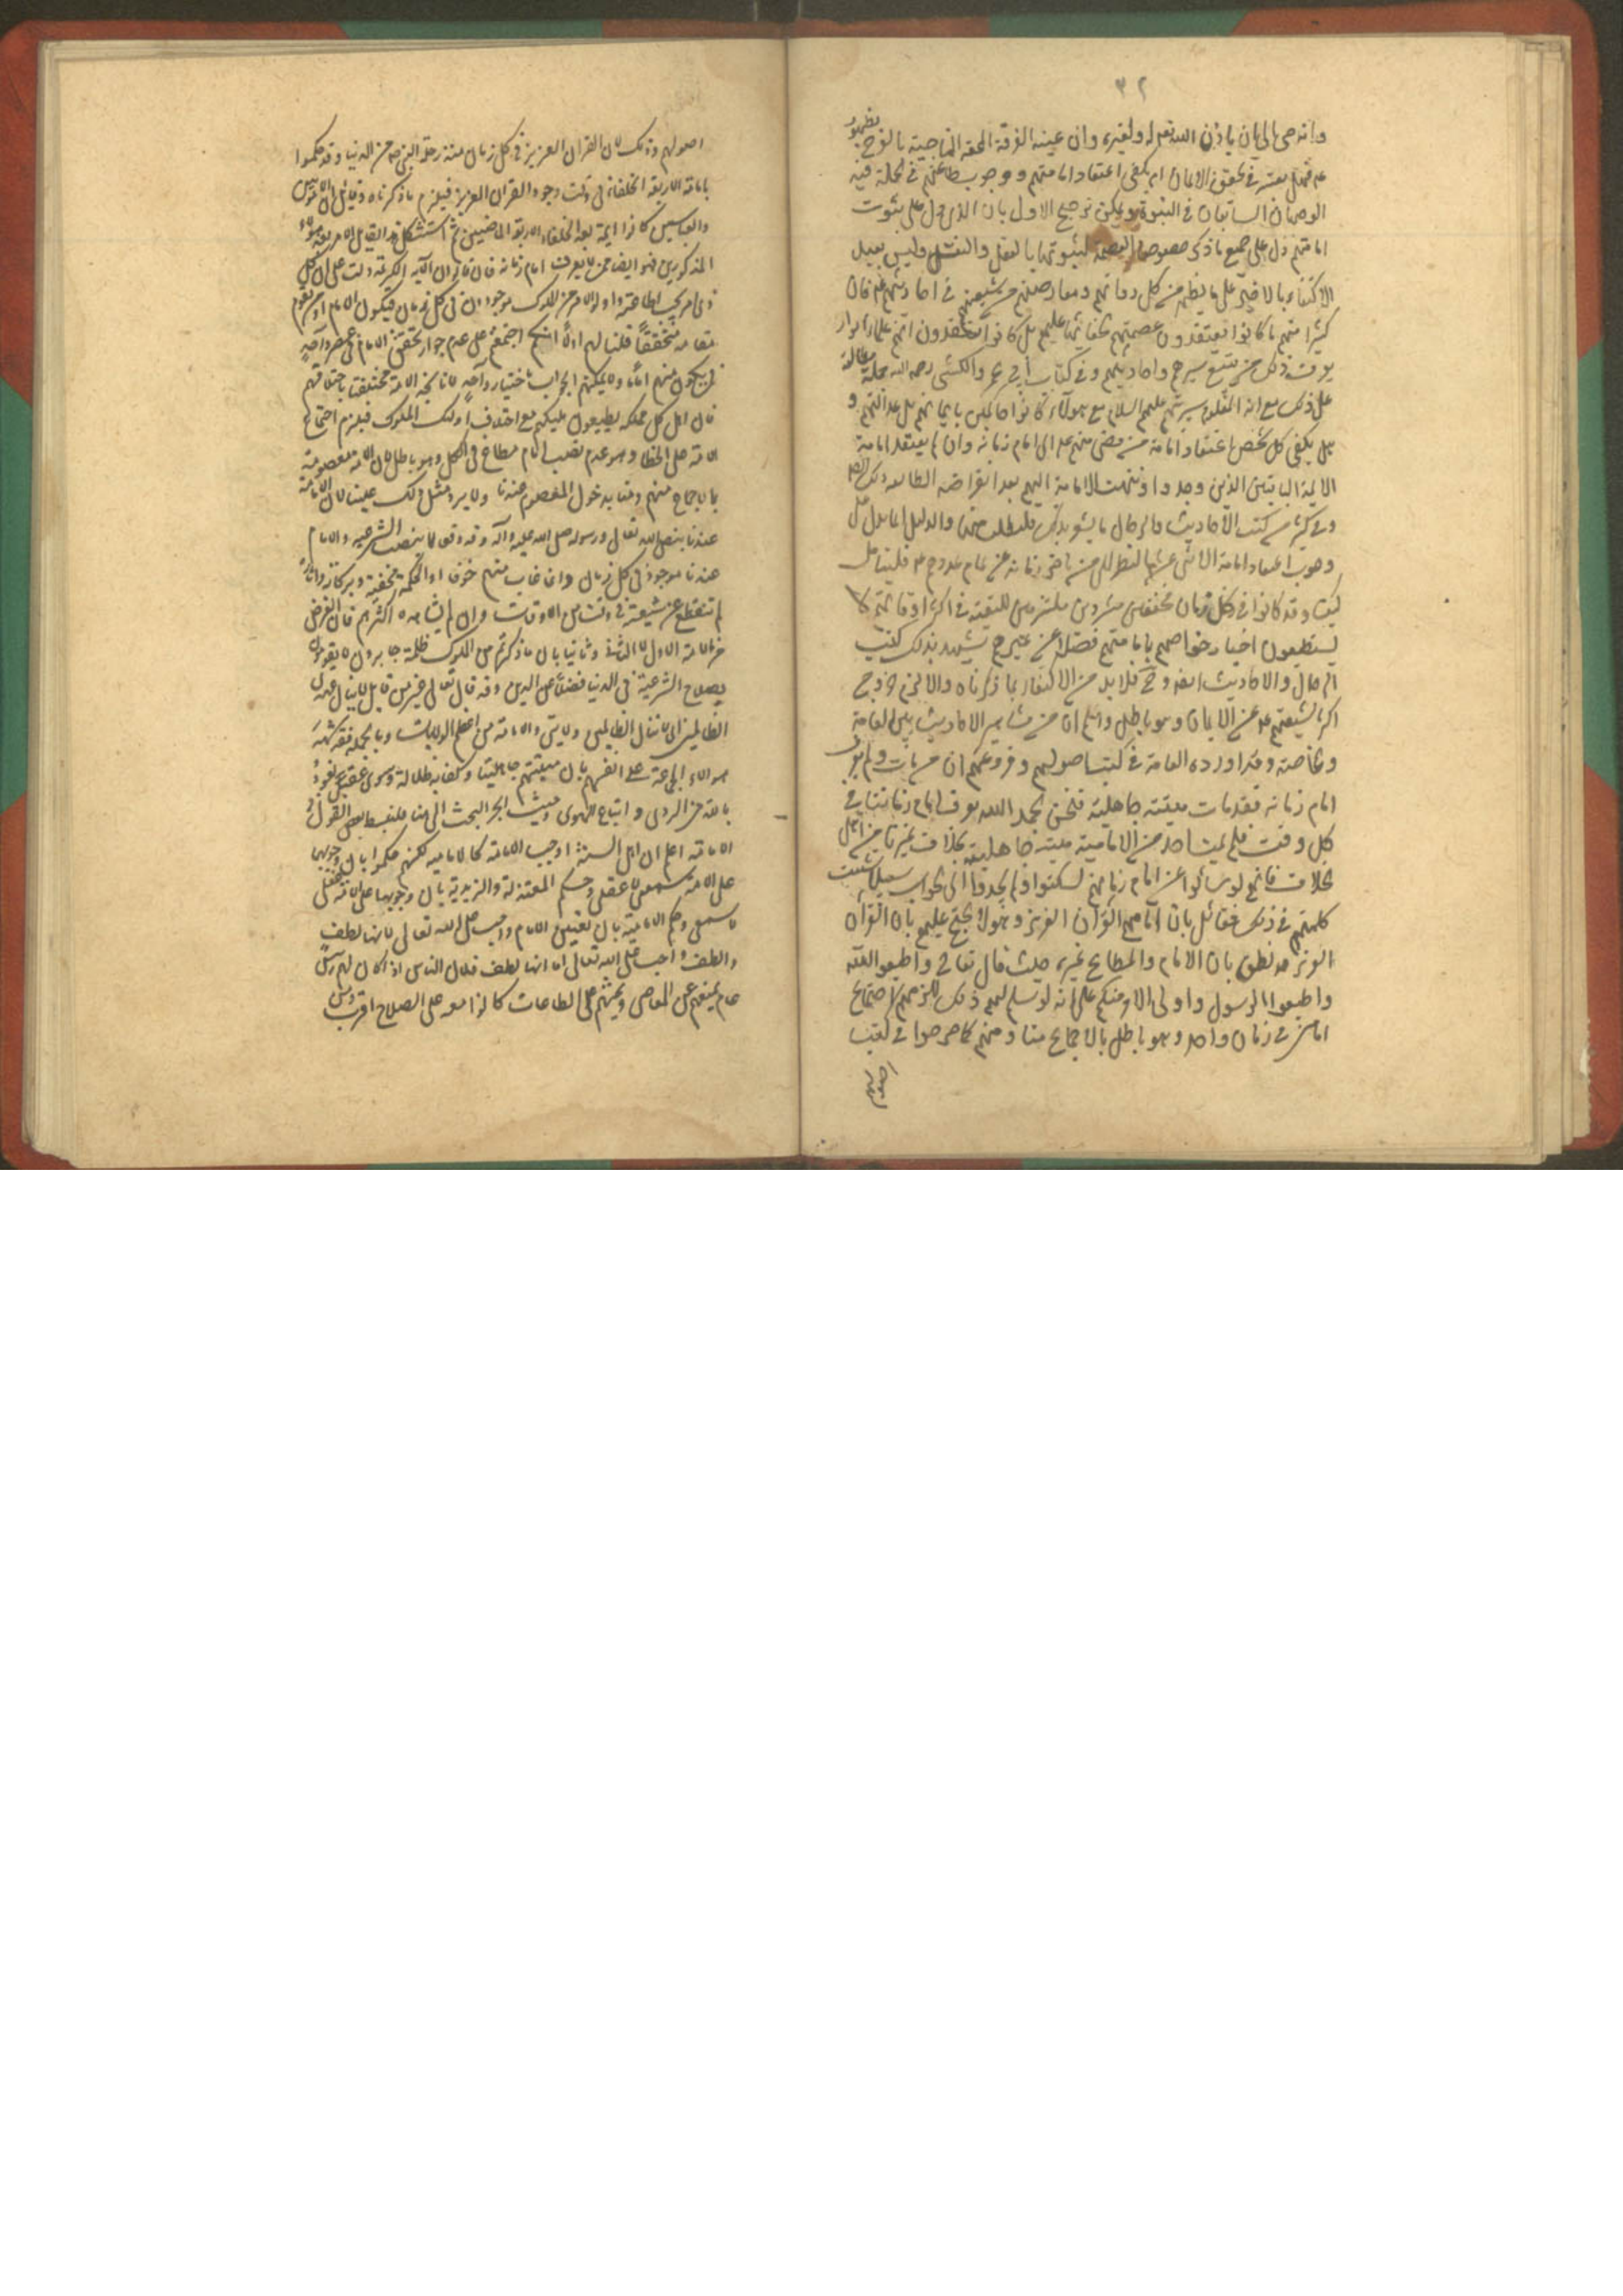 ٣٢
وانه حي الى الان باذن الله تعم له ولغيره وان عينه الفرقة المحقة الناجية بالفرج بظهوره
عم فهل يعتبر في تحقق الايمان ام يكفي اعتقاد امامتهم ووجوب طاعتهم في الجملة فيه
الوجهان السابقان في النبوة ويمكن ترجيح الاول بان الذي دل على ثبوت
امامتهم دل على جميع ما ذكر خصوصا العصمة لثبوتها بالعقل والنقل وليس ببعيد
الاكتفاء بالاخير على ما يظهر من كل رواتهم ومعاصريهم من شيعتهم في احاديثهم عم فان
كثيرا منهم ما كانوا يعتقدون عصمتهم لخفائها عليهم بل كانوا يعتقدون انهم علماء ابرار
يعرف ذلك من تتبع سيرهم واحاديثهم وفي كتاب ابي عمرو الكشي رحمه الله جملة مطلعة
على ذلك مع ان المعلوم من سيرتهم عليهم السلام مع هؤلاء كانوا حاكمين بايمانهم بل عدالتهم و
هل يكفي كل شخص اعتقاد امامة من مضى منهم عم الى امام زمانه وان لم يعتقد امامة
الائمة الباقين الذين وجدوا وانتهت الامامة اليهم بعد انقراضه الظاهر ذلك
وفي كثير من كتب الاحاديث والرجال ما يشعر بذلك فليطلب منها والدليل انما يدل على
وجوب اعتقاد امامة الاثنى عشر بالنظر الى من تاخر زمانه عن تمام عددهم عم فليتامل
كيف وقد كانوا في كل زمان مختفين مشردين ملتزمين للتقية في اكثر اوقاتهم لا
يستطيعون اخبار خواصهم بامامتهم فضلا عن غيرهم يشهد بذلك كتب
الرجال والاحاديث ايضا وح فلا بد من الاكتفاء بما ذكرناه والا لزم خروج
اكثر شيعتهم عم عن الايمان وهو باطل واعلم ان من مشاهير الاحاديث بين العامة
والخاصة وقد اورده العامة في كتب اصولهم وفروعهم ان من مات ولم يعرف
امام زمانه فقد مات ميتة جاهلية فنحن بحمد الله نعرف امام زماننا في
كل وقت فلم يمت احد من الامامية ميتة جاهلية بخلاف غيرنا من اهل
الخلاف فانهم لو سألوا عن امام زمانهم لسكتوا ولم يجدوا الى الجواب سبيلا تشتت
كلمتهم في ذلك فقائل بان امامهم القرآن العزيز وهؤلاء يحتج عليهم بان القرآن
العزيز قد نطق بان الامام والمطاع غيره حيث قال تعالى واطيعوا الله
واطيعوا الرسول واولي الامر منكم على انه لو سلم لهم ذلك للزمهم اجتماع
امامين في زمان واحد وهو باطل بالاجماع منا ومنهم كما صرحوا في كتب
اصولهم
اصولهم وذلك لان القران العزيز في كل زمان منذ رحلة النبي ص من الدنيا وقد حكموا
بامامة الاربعة الخلفاء في وقت وجود القران العزيز فيلزم ما ذكرناه وقائل ان الامويين
والعباسيين كانوا ائمة بعد الخلفاء الاربعة الماضيين ثم استشكل هذا القايل الامر بعد هؤلاء
المذكورين فهو ايضا ممن لا يعرف امام زمانه فان قالوا ان الآية الكريمة دلت على ان كل
ذي امر يجب طاعته واولو الامر من الملوك موجودون في كل زمان فيكون الامام او من يقوم
مقامه متحققا قلنا لهم اولا انكم اجمعتم على عدم جواز تحقق الامام في عصر واحد
فمن يكون منهم اماما ولا يمكنهم الجواب باختيار واحد لانا نجد الامة مختلفة باختلافهم
فان اهل كل مملكة يطيعون مليكهم مع اختلاف اولئك الملوك فيلزم اجتماع
الامة على الخطا وهو عدم نصب امام مطاع في الكل وهو باطل لان الامة معصومة
بالاجماع منهم ومنا بدخول المعصوم عندنا ولا يرد مثل ذلك علينا لان الامامة
عندنا بنص الله تعالى ورسوله صلى الله عليه وآله وقد وقعا بنصب الشرعيه والامام
عندنا موجود في كل زمان وان غاب منهم خوفا او لحكمة مخفية وبركاته واثاره
لم تنقطع عن شيعته في وقت من الاوقات وان لم يشاهده اكثرهم فان الغرض
من الامامة الاول لا الثاني وثانيا بان ما ذكرتم من الملوك ظلمة جابرون لا يقومون
بصلاح الشرعية في الدنيا فضلا عن الدين وقد قال تعالى عز من قايل لا ينال عهدي
الظالمين اي لا تنال الظالمين ولايتي والامامة من اعظم الولايات وبالجملة فقد شهد
هؤلاء الجماعة على انفسهم بان ميتتهم جاهلية وكفى به ضلالة وسوء عقبى نعوذ
بالله من الردى واتباع الهوى وحيث انجر البحث الى هنا فلنبسط بعض القول في
الامامة اعلم ان اهل السنة اوجبوا الامامة كالامامية لكنهم حكموا بان وجوبها
على الامة سمعي لا عقلي وحكم المعتزلة والزيدية بان وجوبها على الامة عقلي
لا سمعي وحكم الامامية بان تعيين الامام واجب على الله تعالى لانها لطف
واللطف واجب على الله تعالى اما انها لطف فلان الناس اذا كان لهم رئيس
عام يمنعهم عن المعاصي ويحثهم على الطاعات كانوا معه على الصلاح اقرب